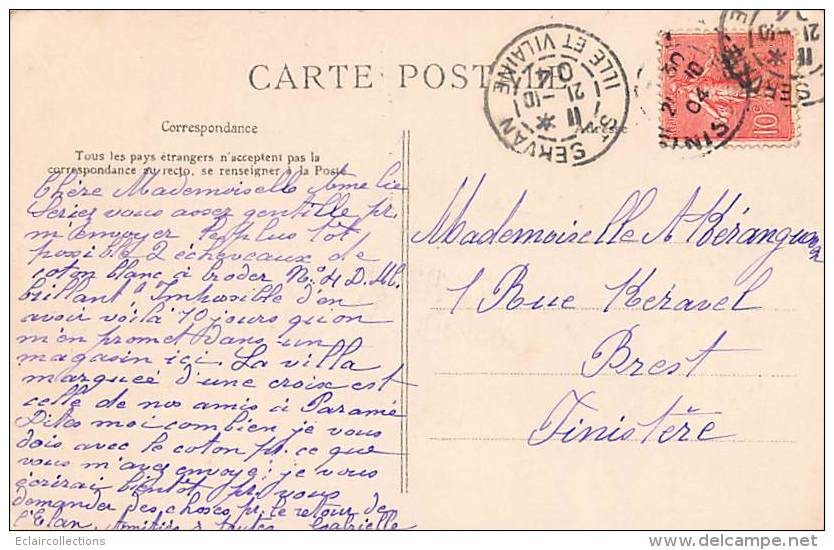 CARTE POSTALE
Correspondance
Adresse
Tous les pays étrangers n'acceptent pas la
correspondance au recto, se renseigner à la Poste
Chère Mademoiselle Amélie
Seriez vous assez gentille pr.
m'envoyer le plus tôt
possible 2 écheveaux de
coton blanc à broder N.° 4 D.M.
brillant, Impossible d'en
avoir voilà 10 jours qu'on
m'en promet dans un
magasin ici. La villa
marquée d'une croix est
celle de nos amis à Paramé
Dites moi combien je vous
dois avec le coton pr. ce que
vous m'avez envoyé; je vous
écrirai bientôt pr. vous
demander des choses pr. le retour de
l'Etan. Amitiés à toutes Gabrielle
Mademoiselle A Kéranguen
1 Rue Keravel
Brest
Finistère
ST SERVAN
ILLE ET VILAINE
21 -10
04
10c
Eclaircollections
delcampe.net